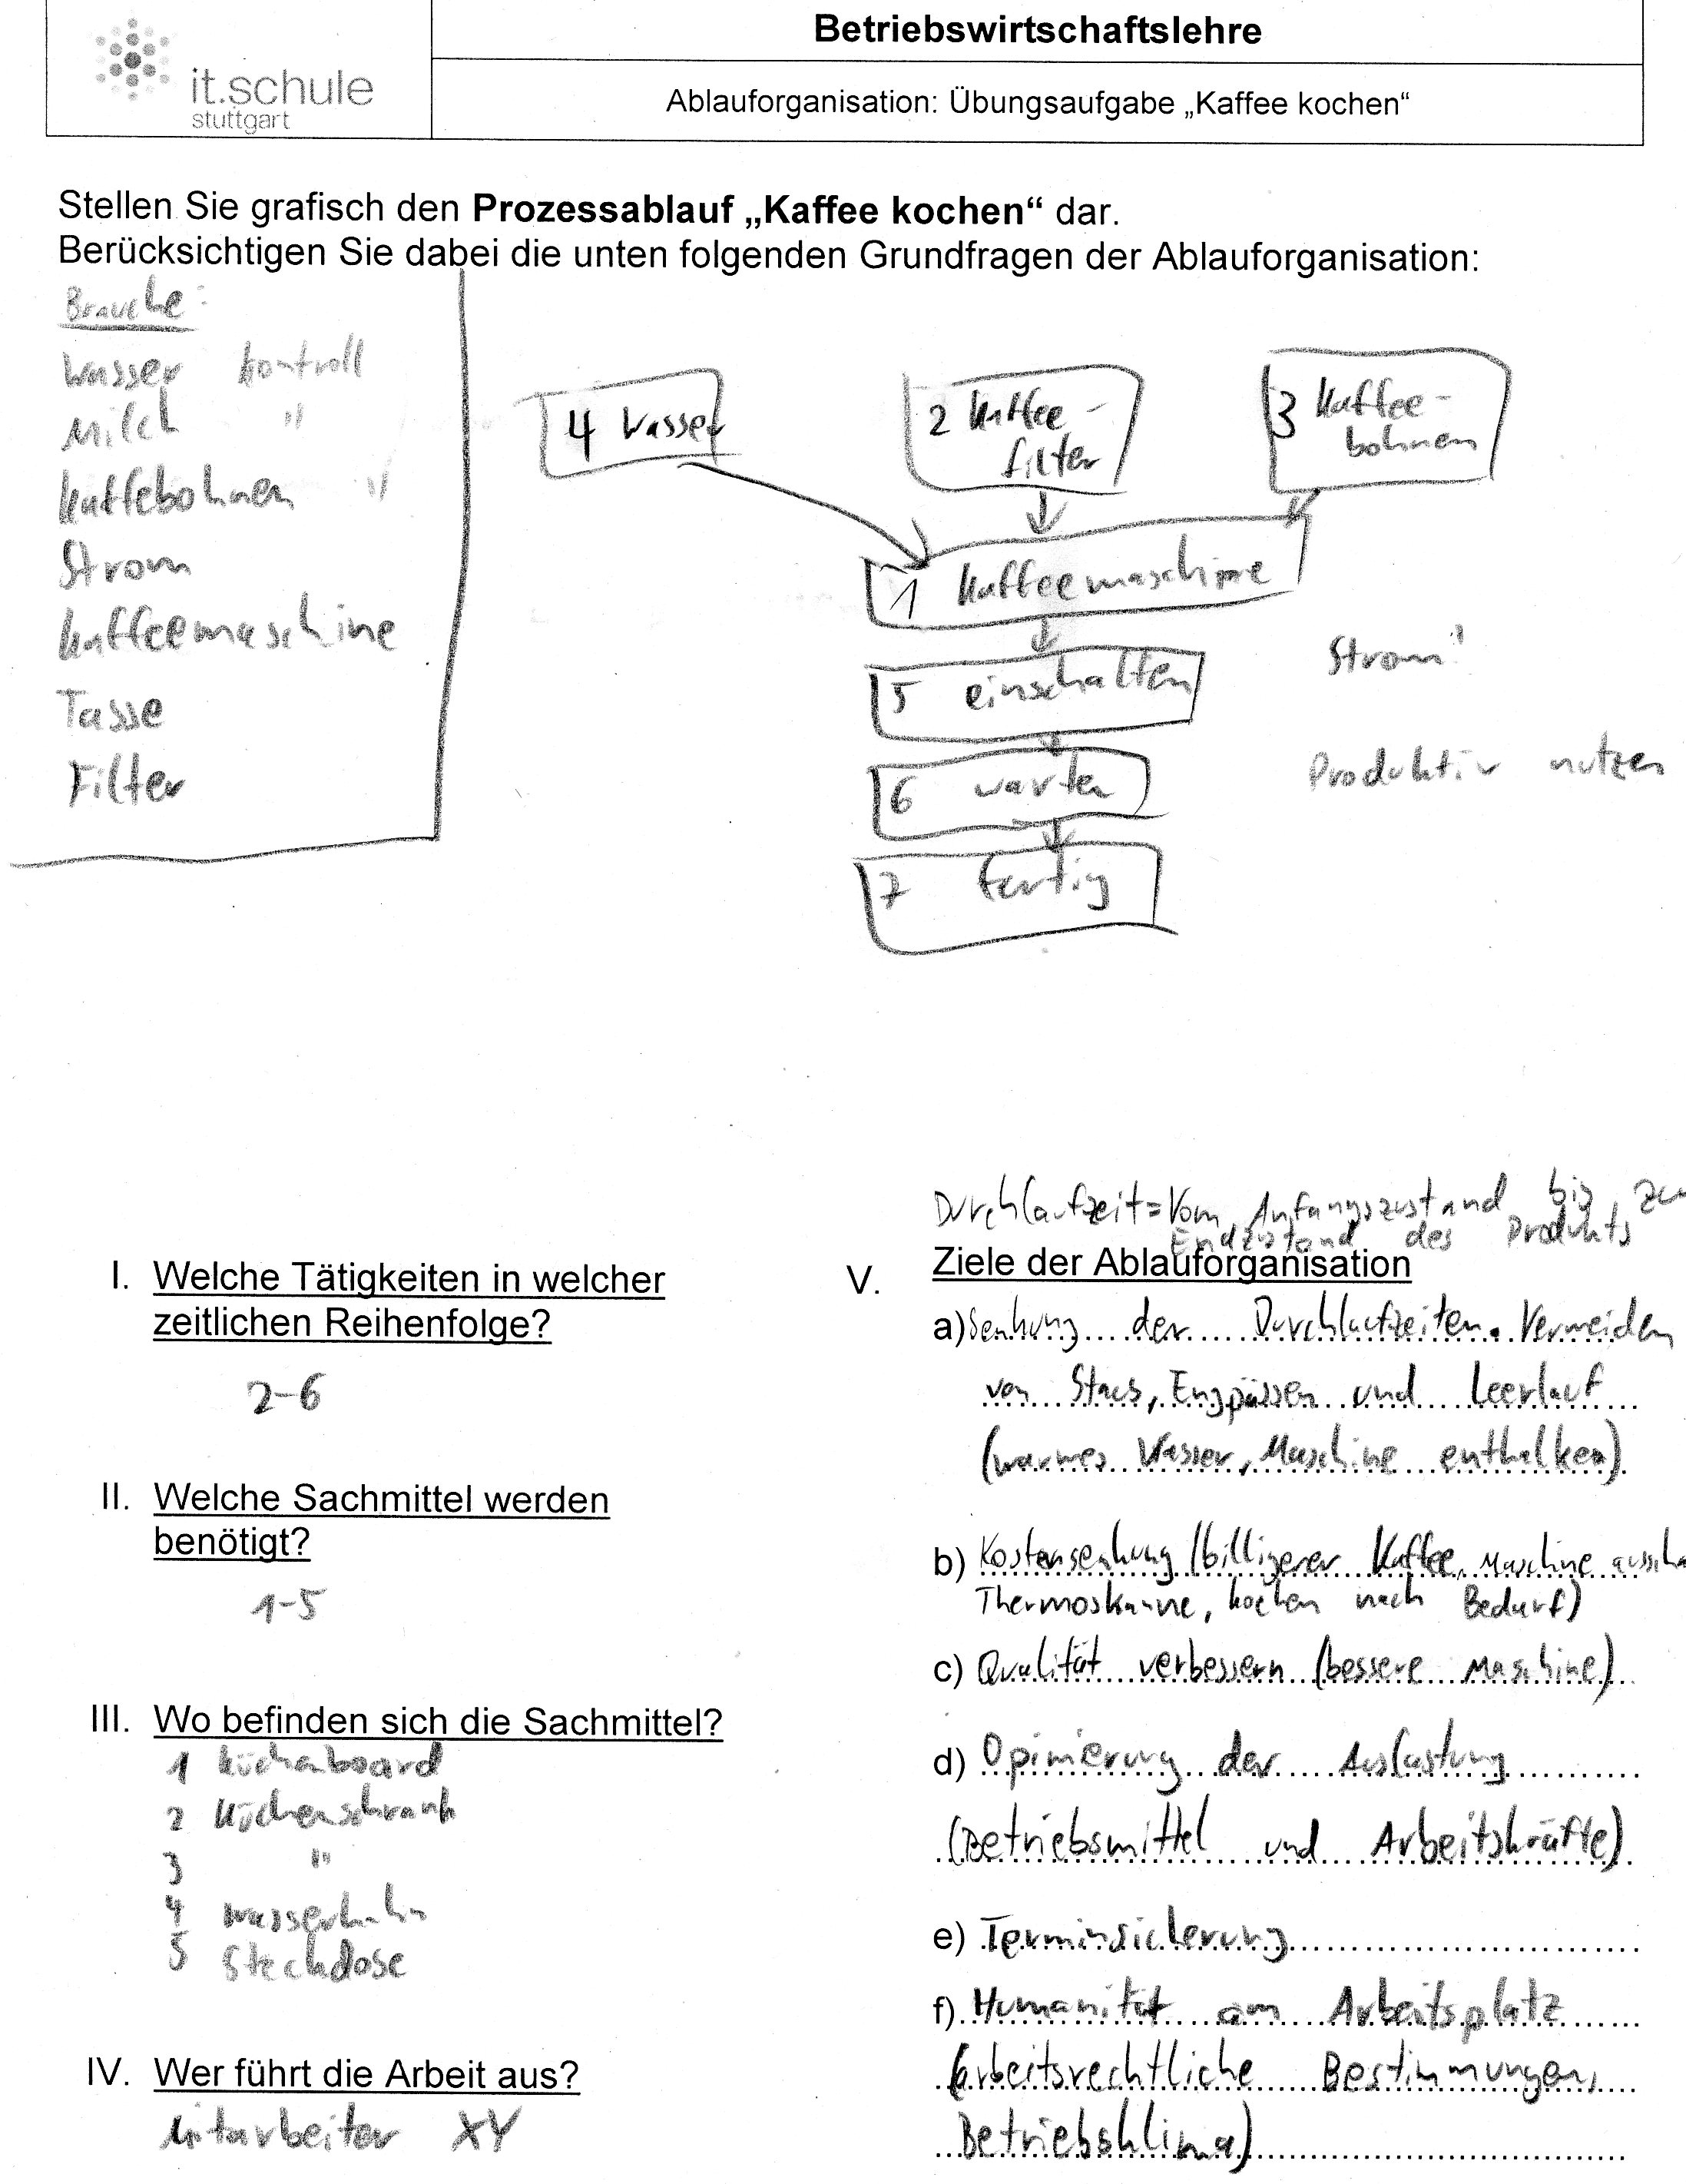 it.schule
stuttgart
Betriebswirtschaftslehre
Ablauforganisation: Übungsaufgabe „Kaffee kochen“
Stellen Sie grafisch den Prozessablauf „Kaffee kochen“ dar.
Berücksichtigen Sie dabei die unten folgenden Grundfragen der Ablauforganisation:
Brauche:
Wasser kontroll
Milch "
Kaffebohnen "
Strom
Kaffeemaschine
Tasse
Filter
4 Wasser
2 Kaffee-
filter
3 Kaffee-
bohnen
1 Kaffeemaschine
5 einschalten
Strom
6 warten
Produktiv nutzen
7 fertig
I. Welche Tätigkeiten in welcher
zeitlichen Reihenfolge?
2-6
II. Welche Sachmittel werden
benötigt?
1-5
III. Wo befinden sich die Sachmittel?
1 Küchenboard
2 Küchenschrank
3 "
4 Wasserhahn
5 Steckdose
IV. Wer führt die Arbeit aus?
Mitarbeiter XY
Durchlaufzeit = Vom Anfangszustand bis zu
Endzustand des Produkts
V. Ziele der Ablauforganisation
a) Senkung der Durchlaufzeiten. Vermeiden
von Staus, Engpässen und Leerlauf
(warmes Wasser, Maschine entkalken)
b) Kostensenkung (billigerer Kaffee, Maschine aussch
Thermoskanne, kochen nach Bedarf)
c) Qualität verbessern (bessere Maschine)
d) Opimierung der Auslastung
(Betriebsmittel und Arbeitskräfte)
e) Terminsicherung
f) Humanität am Arbeitsplatz
(arbeitsrechtliche Bestimmungen,
Betriebsklima)